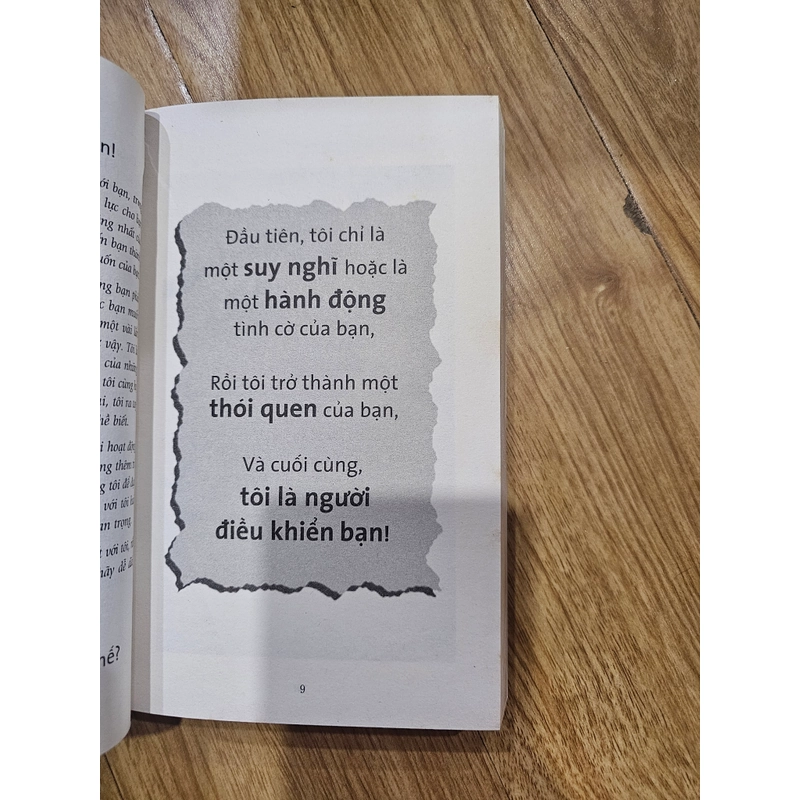 n!
ới bạn, trọ
lực cho
ng nhất
ến bạn thà
uốn của bạ
ng bạn ph
c bạn mu
một vài
vậy. Tôi
của nhữn
tôi cũng
i, tôi ra
hể biết.
i hoạt độn
ng thêm
g tôi để
với tôi
an trọng.
t với tôi,
hãy để
hế?
Đầu tiên, tôi chỉ là
một suy nghĩ hoặc là
một hành động
tình cờ của bạn,
Rồi tôi trở thành một
thói quen của bạn,
Và cuối cùng,
tôi là người
điều khiển bạn!
9